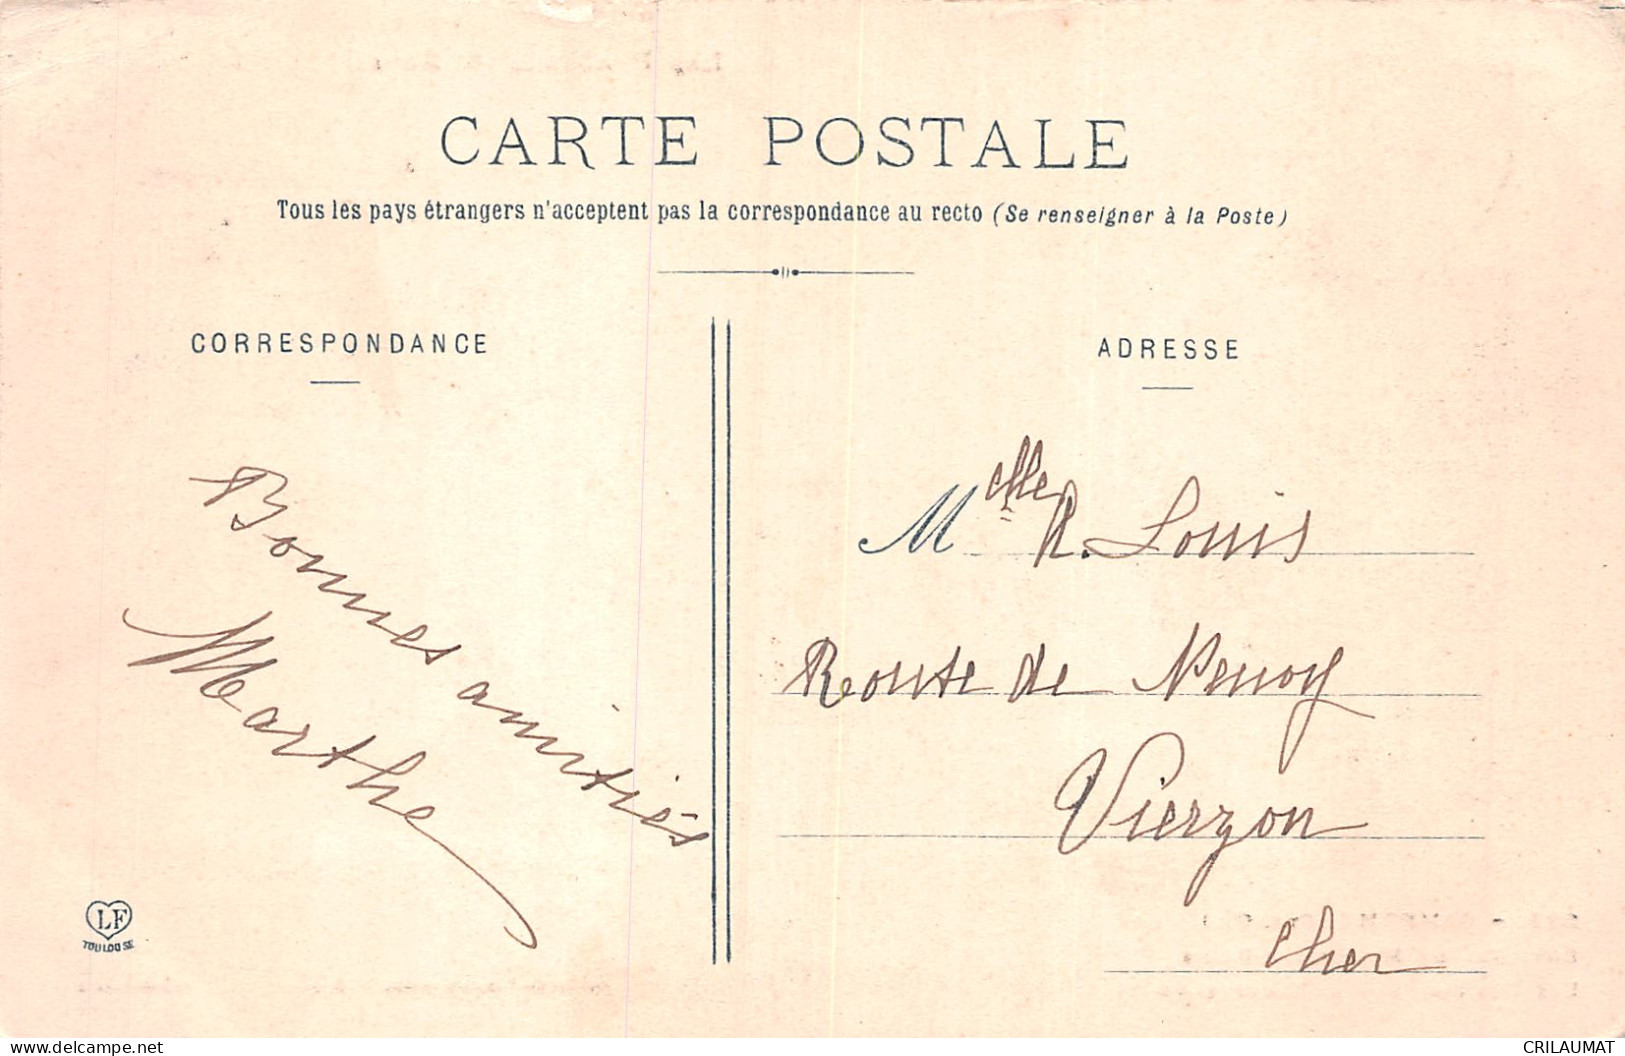 CARTE POSTALE
Tous les pays étrangers n'acceptent pas la correspondance au recto (Se renseigner à la Poste)
CORRESPONDANCE
Bonnes amitiés
Marthe
LF
TOULOUSE
ADRESSE
Melle R. Louis
Route de Neuvy
Vierzon
Cher
delcampe.net
CRILAUMAT